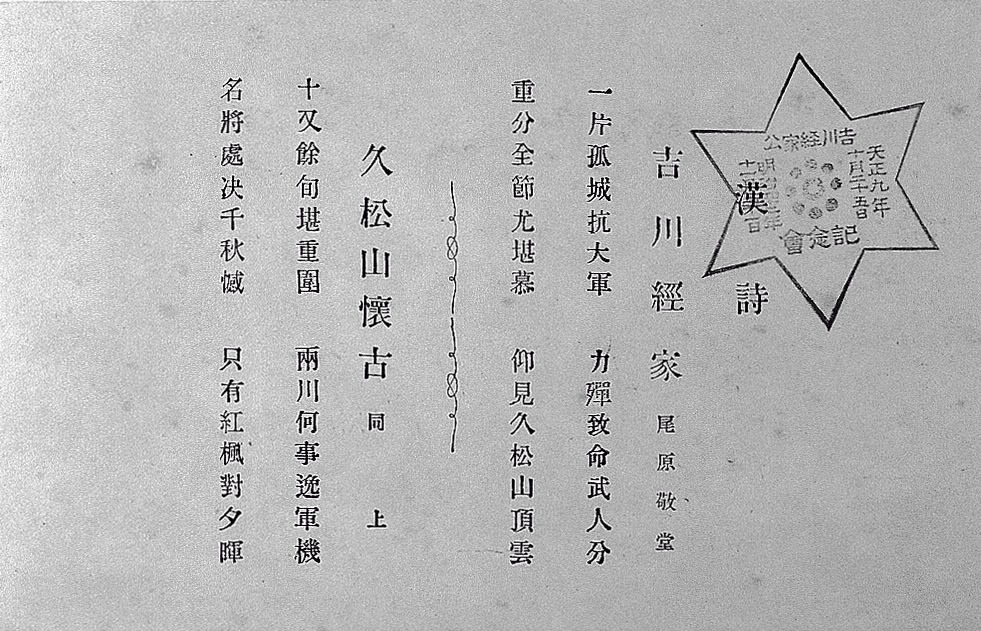 漢詩
吉川經家 尾原敬堂
一片孤城抗大軍 力殫致命武人分
重分全節尤堪慕 仰見久松山頂雲
久松山懷古 同上
十又餘旬堪重圍 兩川何事逸軍機
名將處決千秋憾 只有紅楓對夕暉
吉川経家公
天正九年
十月二十五日
記念會